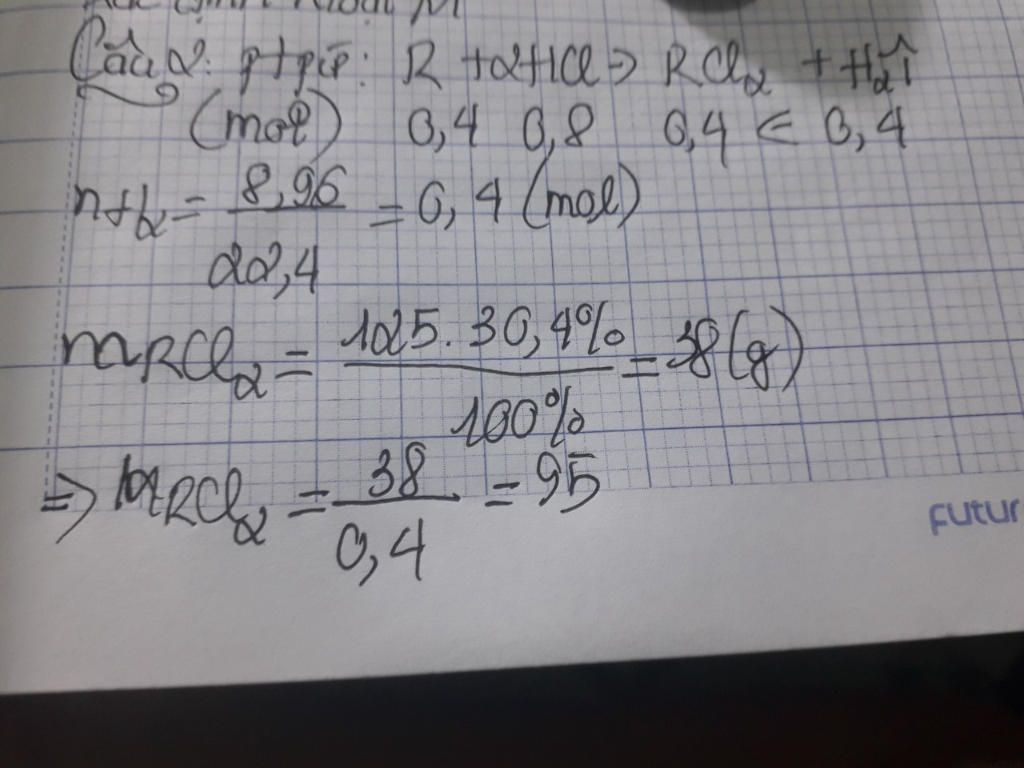 Câu 2: ptpư: R + 2HCl → RCl2 + H2↑
(mol) 0,4 0,8 0,4 < 0,4
nH2 = 8,96 / 22,4 = 0,4 (mol)
mRCl2 = 125.30,4% / 100% = 38 (g)
=> MRCl2 = 38 / 0,4 = 95
futur